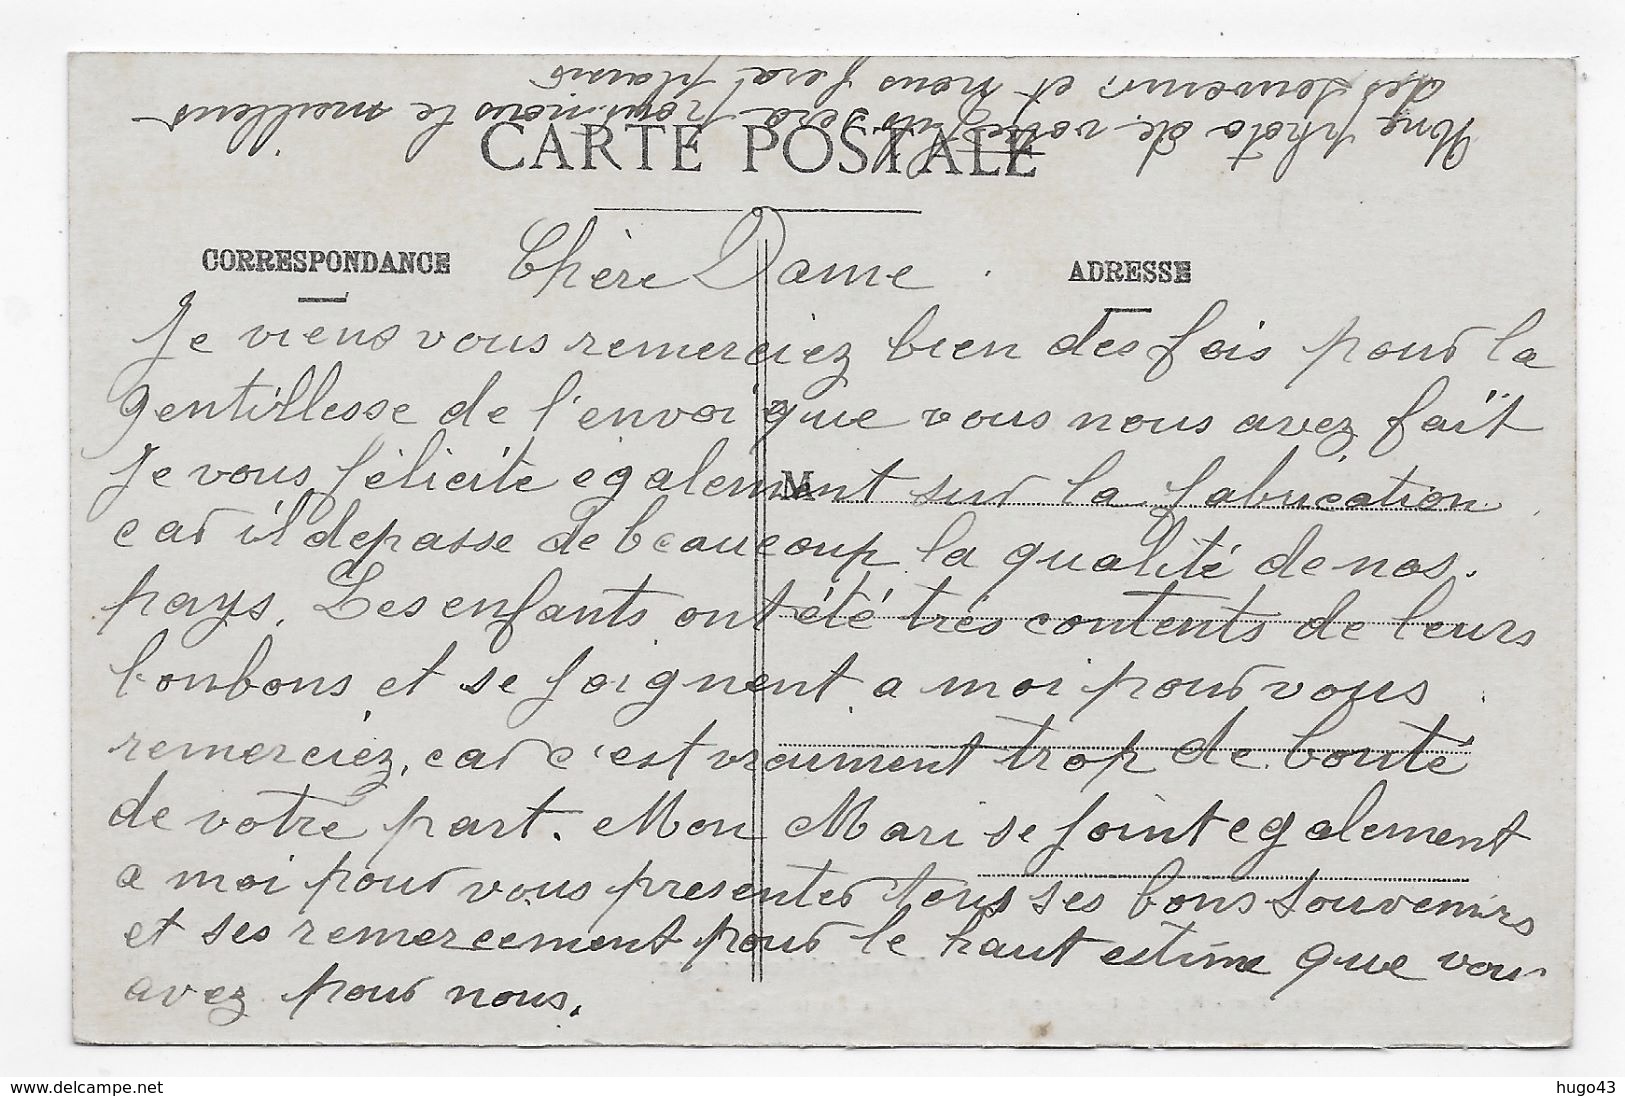 Une photo de votre fils sera pour nous le meilleur
des souvenir et nous fera plaisir
CARTE POSTALE
CORRESPONDANCE
Chère Dame
ADRESSE
Je viens vous remerciez bien des fois pour la
gentillesse de l'envoi que vous nous avez faït
Je vous félicite egalement sur la fabrication
M
car il depasse de beaucoup la qualité de nos
pays. Les enfants ont été très contents de leurs
bonbons et se joignent a moi pour vous
remerciez, car c'est vraiment trop de bonté
de votre part. Mon Mari se joint egalement
a moi pour vous presenter tous ses bons souvenirs
et ses remerciement pour le haut estime que vous
avez pour nous.
www.delcampe.net
hugo43